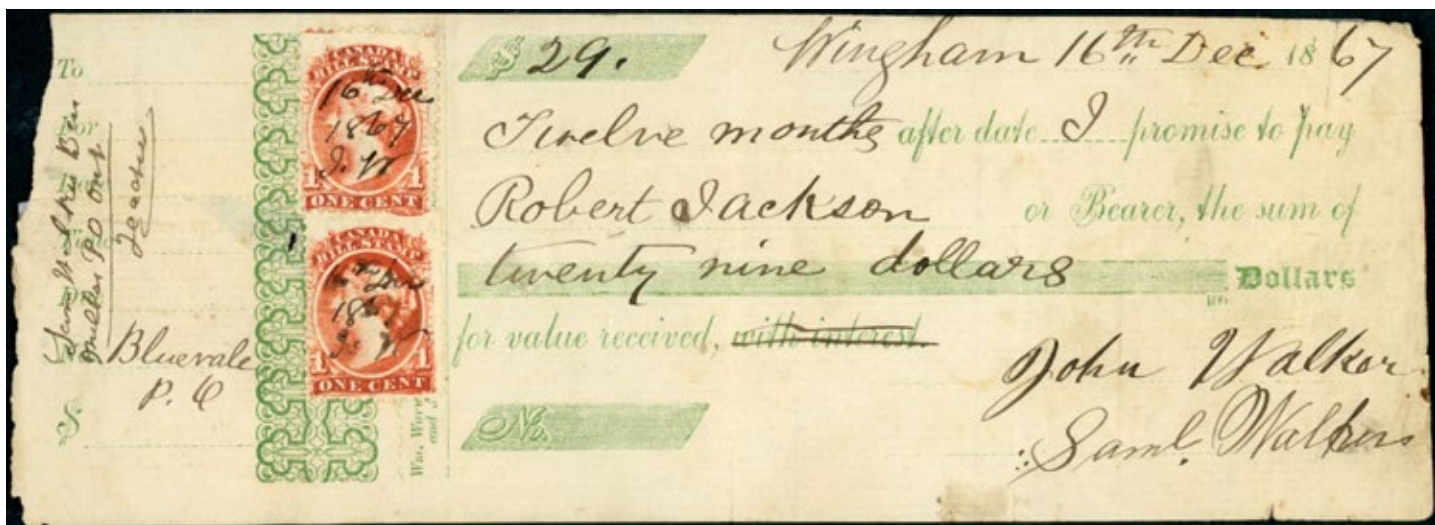 To
For
Bluevale
P. O
$
CANADA
BILL STAMP
16th Dec
1867
J. W
1 1
ONE CENT
CANADA
BILL STAMP
16th Dec
1867
J. W
1 1
ONE CENT
$ 29.
Wingham 16th Dec 1867
Twelve months after date I promise to pay
Robert Jackson or Bearer, the sum of
twenty nine dollars
100 Dollars
for value received, with interest.
John Walker
Saml. Walker
No.